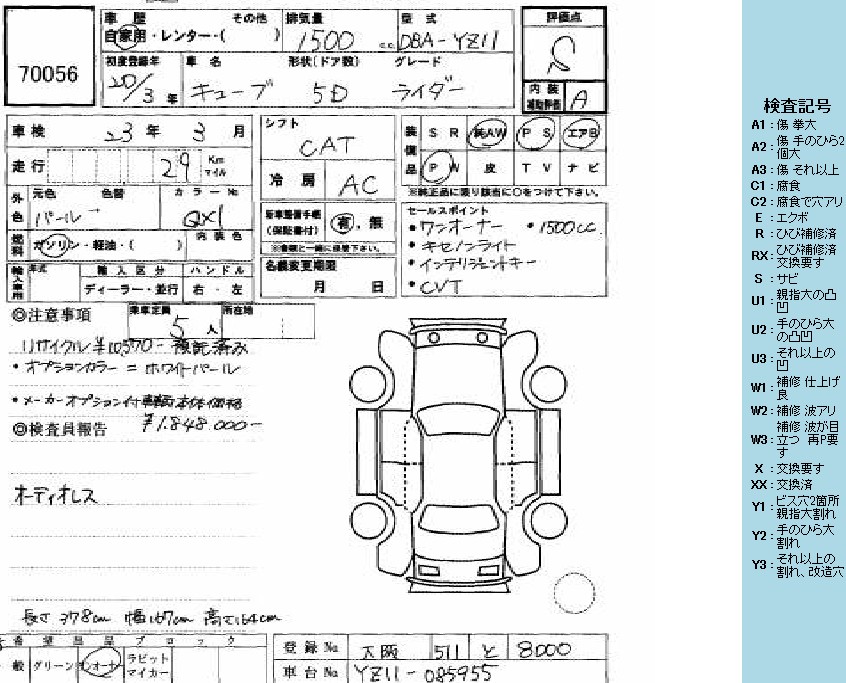 70056
車歴 その他 排気量 型式 評価点
自家用・レンター・( ) 1500 c.c. DBA-YZ11 S
初度登録年 車名 形状(ドア数) グレード
20/3年 キューブ 5D ライダー
内装補助評価 A
車検 23年 3月
走行 29 Km マイル
外色 元色 色替 カラーNo
パール QX1
燃料 ガソリン・軽油・( ) 内装色
輸入車用 年式 輸入区分 ハンドル
ディーラー・並行 右・左
シフト
CAT
冷房 AC
新車整備手帳(保証書付) 有・無
※書類と一緒に保管下さい。
名義変更期限
月 日
装備品 SR 純AW PS エアB
PW 皮 TV ナビ
※純正品に限り該当に○をつけて下さい。
セールスポイント
・ワンオーナー ・1500cc
・キセノンライト
・インテリジェントキー
・CVT
◎注意事項 乗車定員 5人 所在地
リサイクル¥10,570- 預託済み
・オプションカラー = ホワイトパール
・メーカーオプション付車輌本体価格
¥1.848.000-
◎検査員報告
オーディオレス
長さ378cm 幅167cm 高さ164cm
希望出品ブロック
般 グリーン ワンオーナー ラビットマイカー
登録No 大阪 511 と 8000
車台No YZ11-085955
検査記号
A1:傷 拳大
A2:傷 手のひら2個大
A3:傷 それ以上
C1:腐食
C2:腐食で穴アリ
E:エクボ
R:ひび補修済
RX:ひび補修済 交換要す
S:サビ
U1:親指大の凸凹
U2:手のひら大の凸凹
U3:それ以上の凹
W1:補修 仕上げ良
W2:補修 波アリ
W3:補修 波が目立つ 再P要す
X:交換要す
XX:交換済
Y1:ビス穴2箇所 親指大割れ
Y2:手のひら大割れ
Y3:それ以上の割れ、改造穴